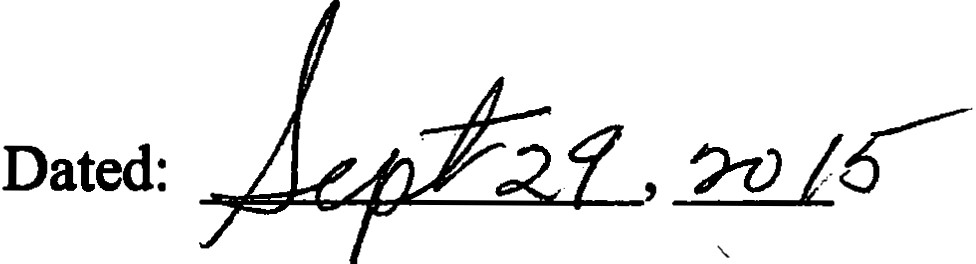 Dated: Sept 29, 2015